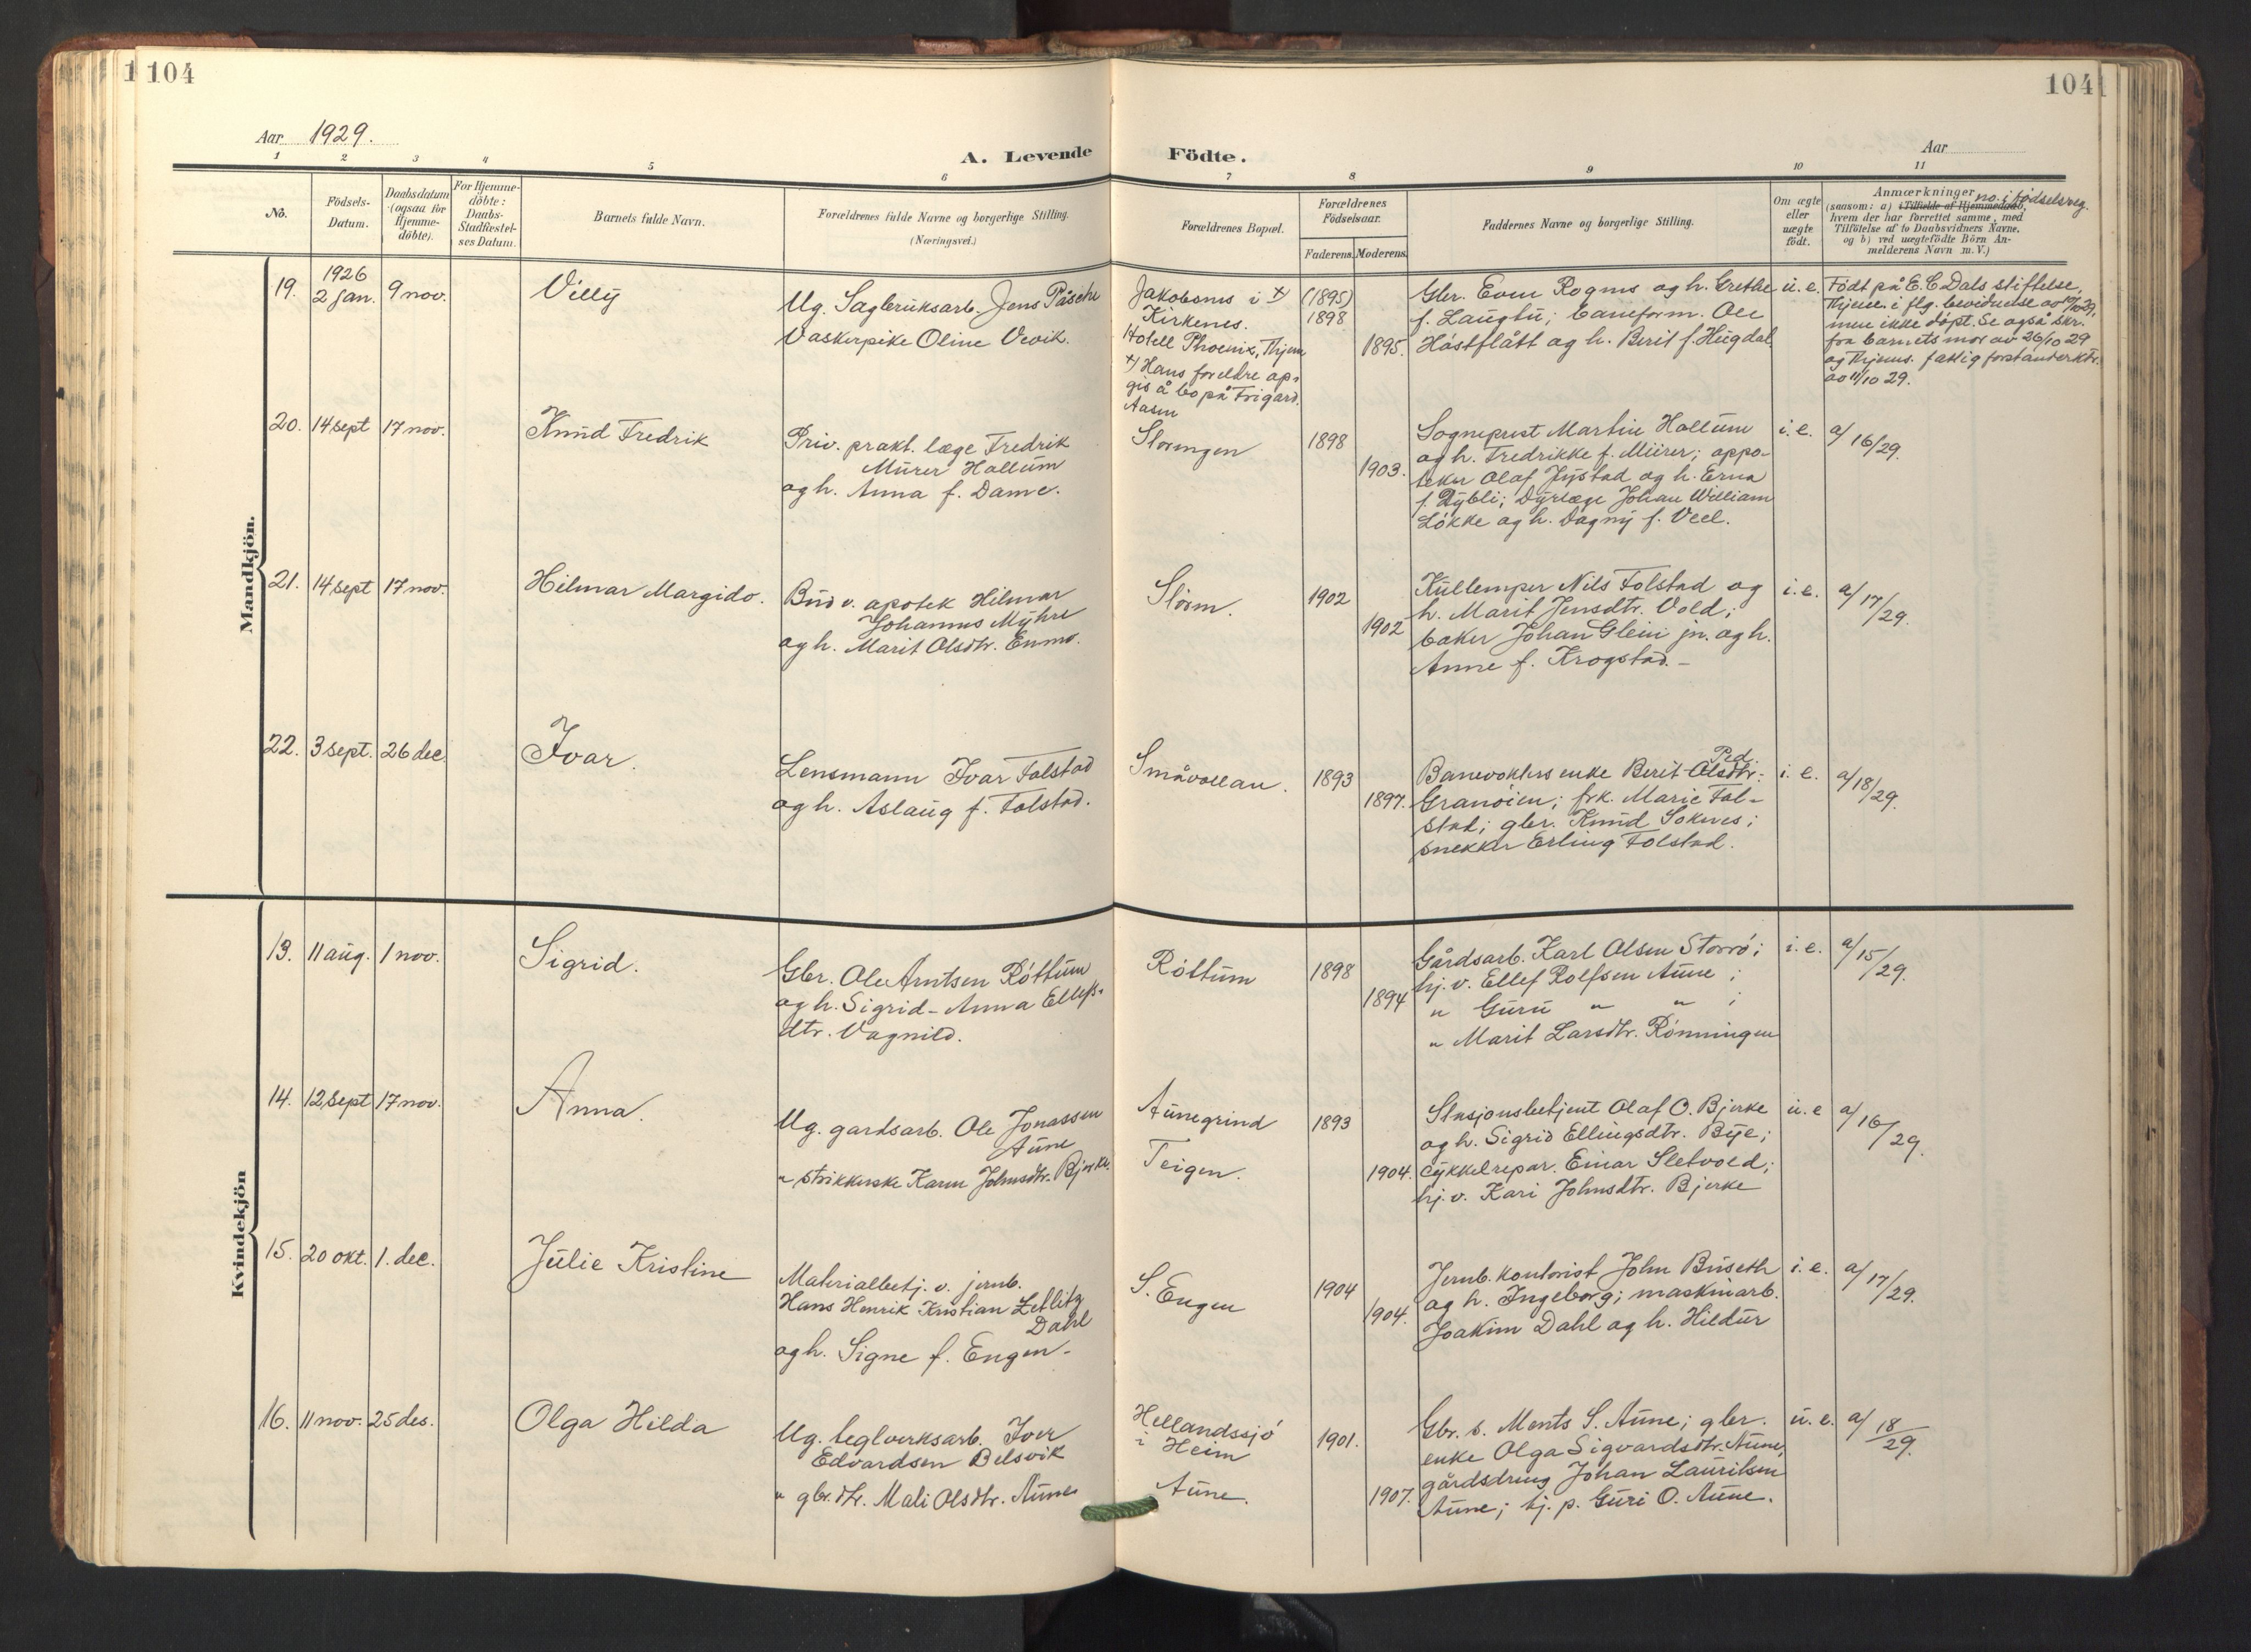 1 104
104
Aar 1929.
A. Levende Födte.
Aar
1 2 3 4 5 6 7 8 9 10 11
No.
Födsels-Datum.
Daabsdatum (ogsaa for Hjemme-döbte).
For Hjemme-döbte: Daabs-Stadfæstel-ses Datum.
Barnets fulde Navn.
Forældrenes fulde Navne og borgerlige Stilling.
(Næringsvei.)
Forældrenes Bopæl.
Forældrenes Födselsaar.
Faderens. Moderens.
Faddernes Navne og borgerlige Stilling.
Om ægte eller uægte födt.
Anmærkninger no. i fødselsreg.
(saasom: a) i Tilfælde af Hjemmedaab,
hvem der har forrettet samme, med
Tilföielse af to Daabsvidners Navne.
og b) ved uægtefödte Börn An-
melderens Navn m. V.)
Mandkjön.
19. 1926 2 jan. 9 nov. Villy
Ug. Sagbruksarb. Jens Påsche
Vaskerpike Oline Vevik.
Jakobsnes i x)
Kirkenes.
Hotell Phoenix, Thjem
x) Hans foreldre op-
gis å bo på Frigard.
Aasen
(1895)
1898
1895.
Gbr. Even Rognes og h. Grethe
f. Laugtu; baneform. Ole
Håstflått og h. Berit f. Hugdal.
u. e.
Født på E. C. Dals stiftelse,
Thjem. i flg. bevidnelse av 10/10 29,
men ikke døpt. Se også skr.
fra barnets mor av 26/10 29
og Thjems. fatlig forstanderktr.
av 11/10 29.
20. 14 sept 17 nov. Knud Fredrik
Priv. prakt. læge Fredrik
Mürer Hallüm
og h. Anna f. Dame.
Storengen
1898
1903.
Sogneprest Martin Hallüm
og h. Fredrikke f. Mürer; appo-
teker Olaf Jystad og h. Erna
f. Dybli; Dyrlæge Johan William
Løkke og h. Dagny f. Veel.
i. e. a/16/29.
21. 14 sept 17 nov. Hilmar Margido.
Bud v. apotek Hilmar
Johannes Myhre
og h. Marit Olsdtr. Enmo.
Støren.
1902
1902
Kullemper Nils Folstad og
h. Marit Jensdtr. Vold;
baker Johan Glein jn. og h.
Anne f. Krogstad. -
i. e. a/17/29.
22. 3 sept. 26 dec. Ivar.
Lensmann Ivar Folstad
og h. Aslaug f. Folstad.
Småvollan.
1893
1897.
Ped.
Banevokters enke Berit Olsdtr.
Granøien; frk. Marie Fol-
stad; gbr. Knud Soknes;
snekker Erling Folstad.
i. e. a/18/29.
Kvindekjön
13. 11 aug. 1 nov. Sigrid.
Gbr. Ole Arntsen Røttum
og h. Sigrid-Anna Ellefs-
dtr. Vagnild.
Røttum
1898
1894
Gårdsarb. Karl Olsen Storrø;
hj. v. Ellef Rolfsen Aune;
" Guru " " ;
" Marit Larsdtr. Rønningen
i. e. a/15/29.
14. 12 sept 17 nov. Anna.
Ug. gardsarb. Ole Jonassen
Aune
" strikkerske Karen Johnsdtr. Bjerke.
Aunegrind
Teigen.
1893
1904.
Stasjonsbetjent Olaf O. Bjerke
og h. Sigrid Ellingsdtr. Bye;
cykkelrepar. Einar Sletvold;
hj. v. Kari Johnsdtr. Bjerke
u. e a/16/29.
15. 20 okt. 1. dec. Julie Kristine
Materialbetj. v. jernb.
Hans Henrik Kristian Zetlitz
Dahl
og h. Signe f. Engen -
S. Engen
1904
1904.
Jernb. kontorist John Buseth
og h. Ingeborg; maskinarb.
Joakim Dahl og h. Hildur
i. e. a/17/29.
16. 11 nov. 25 des. Olga Hilda
Ug. teglverksarb. Iver
Edvardsen Belsvik
" gbr. dtr. Mali Olsdtr. Aune
Hellandssjø
i Heim
Aune.
1901.
1907.
Gbr. s. Monts S. Aune; gbr.
enke Olga Sigvardsdtr. Aune;
gårdsdreng Johan Lauritsen
Aune; hj. p. Guri O. Aune.
u. e. a/ 18/29.